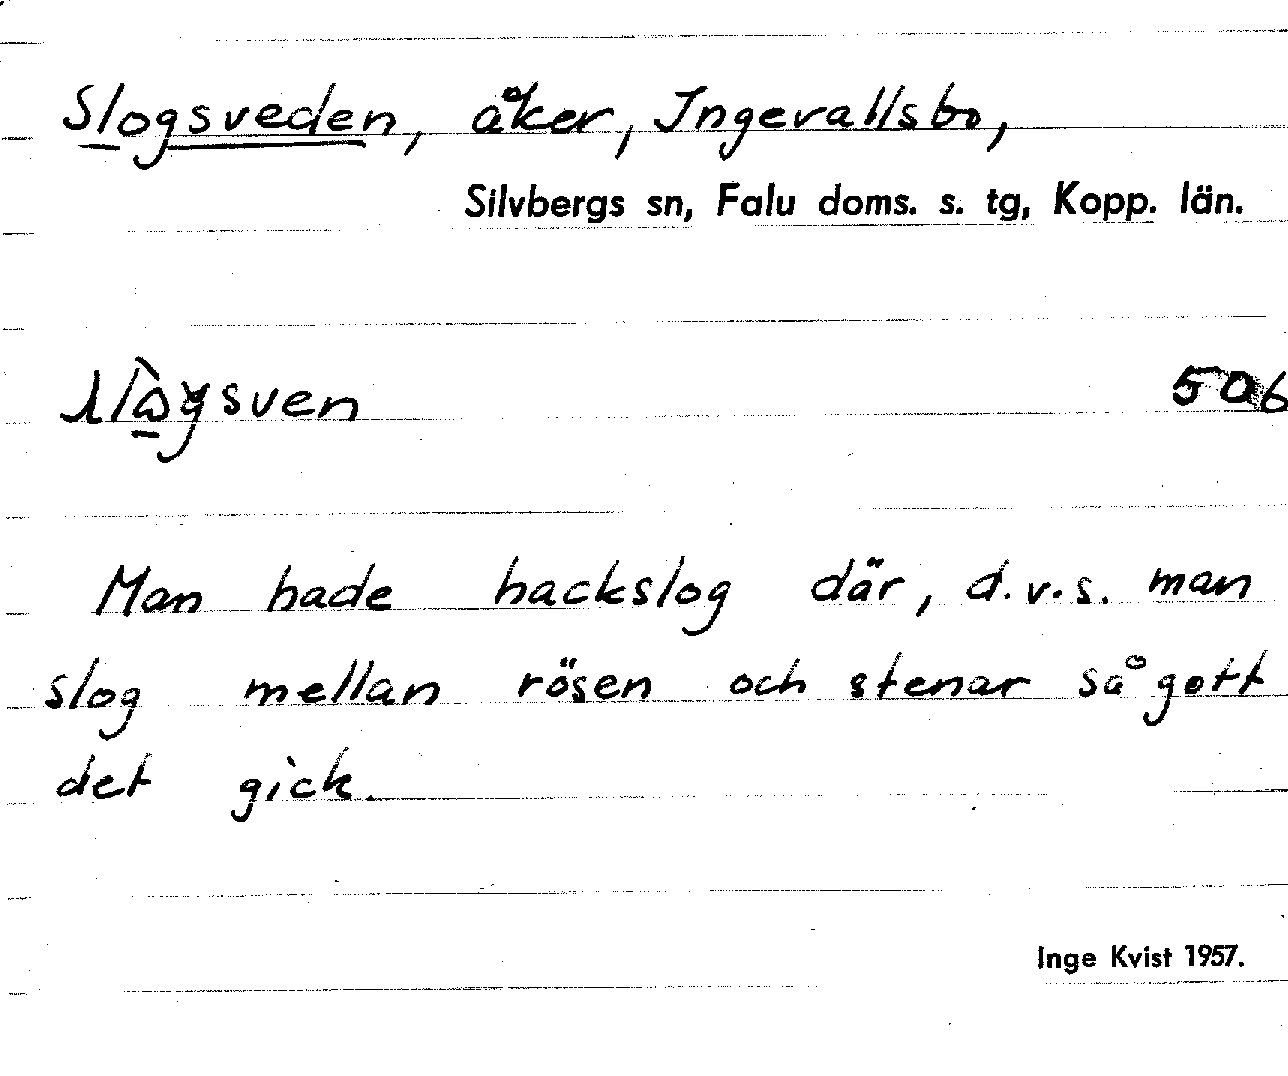 Slogsveden, åker, Ingevallsbo,
Silvbergs sn, Falu doms. s. tg, Kopp. län.
506
Man hade hackslog där, d.v.s. man
slog mellan rösen och stenar så gott
det gick.
Inge Kvist 1957.